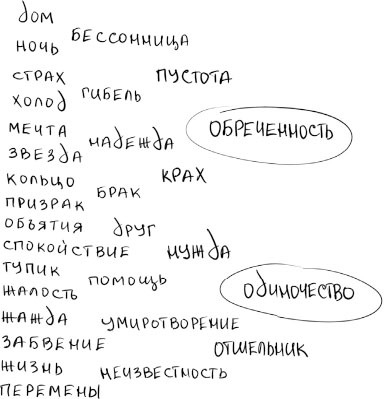 дом
ночь
страх
холод
мечта
звезда
кольцо
призрак
объятия
спокойствие
тупик
жалость
жажда
забвение
жизнь
перемены
бессонница
гибель
надежда
брак
друг
помощь
умиротворение
неизвестность
пустота
крах
нужда
отшельник
обреченность
одиночество